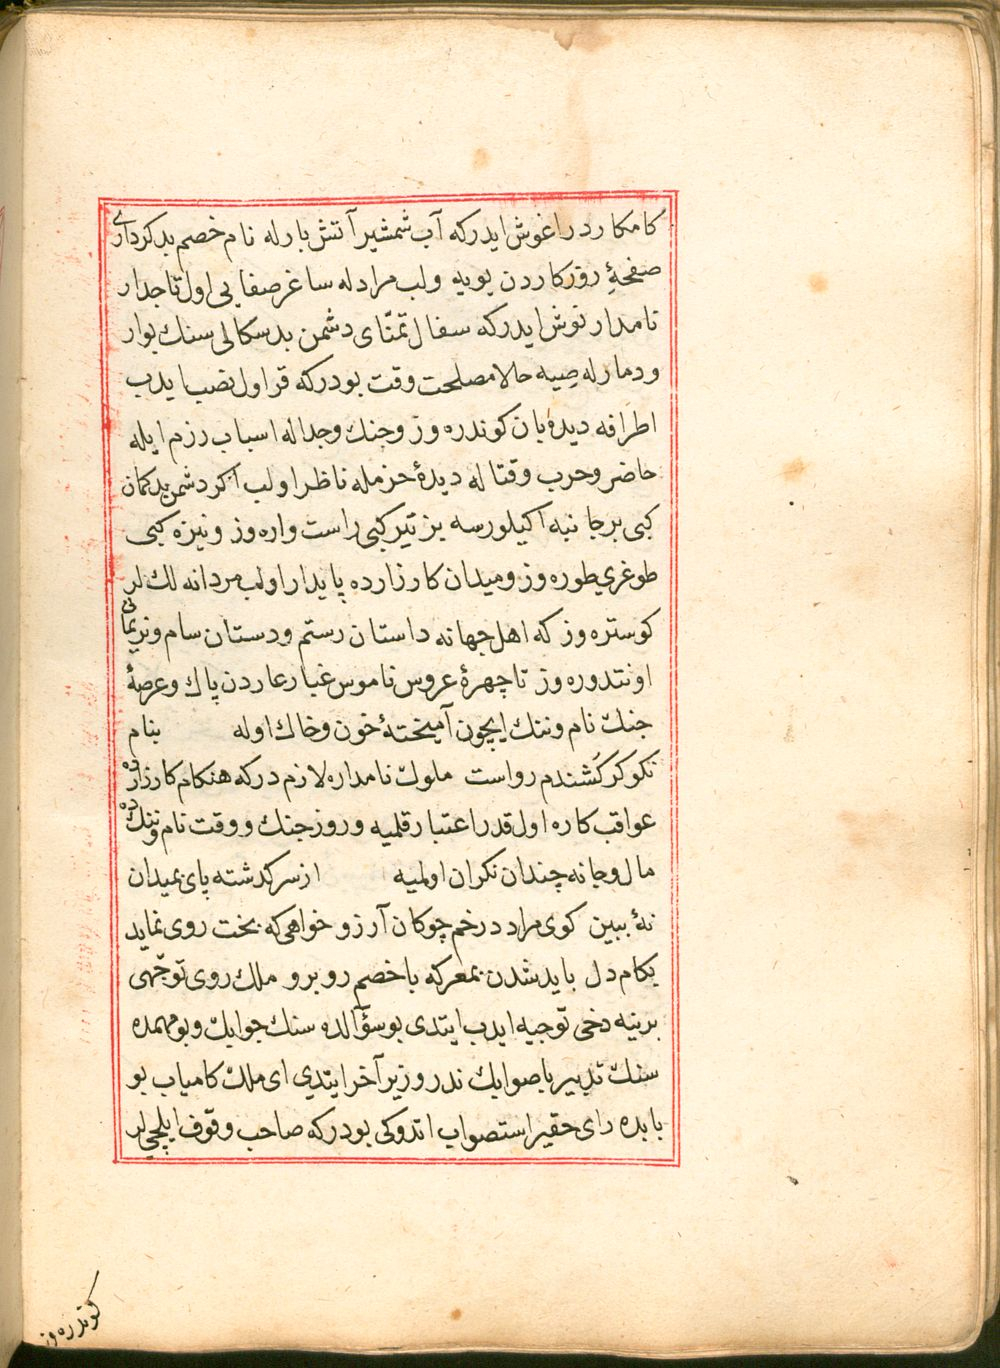 كامكار دراغوش ايدركه آب شمشير آتش بارله نام خصم بدكرداری
صفحهٔ روزكاردن يويه ولب مرادله ساغر صفايی اول تاجدار
نامدار نوش ايدركه سفال تمنّای دشمن بدسكالی سنك بوار
ودمارله صيه حالا مصلحت وقت بودركه قراول نصب ايدب
اطرافه ديدهٔ بان كوندره وز وجنك وجداله اسباب رزم ايله
حاضر وحرب وقتاله ديدهٔ حزمله ناظر اولب اكر دشمن بدكمان
كبی بر جانبه اكيلورسه بز تير كبی راست واره وز ونيزه كبی
طوغری طوره وز وميدان كارزارده پايدار اولب مردانه لك لر
كوستره وز كه اهل جهانه داستان رستم ودستان سام ونريمانی
اونتدوره وز تا چهرهٔ عروس ناموس غبار عاردن پاك وعرصهٔ
جنك نام وننك ايچون آميختهٔ خون وخاك اوله بنام
نكو كر كُشندم رواست ملوك نامداره لازم دركه هنكام كارزارده
عواقب كاره اول قدر اعتبار قلميه وروز جنك ووقت نام وننكده
مال وجانه چندان نكران اولميه از سر كذشته پای بميدان
نهٔ ببين كوی مراد در خم چوكان آرزو خواهی كه بخت روی نمايد
بكام دل بايد شدن بمعركه با خصم روبرو ملك روی توجّهی
برينه دخی توجيه ايدب ايتدی بو سؤالده سنك جوابك وبو مهمده
سنك تدبير باصوابك ندر وزير آخر ايتدي ای ملك كامياب بو
بابده رای حقير استصواب اتدوكی بودركه صاحب وقوف ايلچي لر
كوندره وز